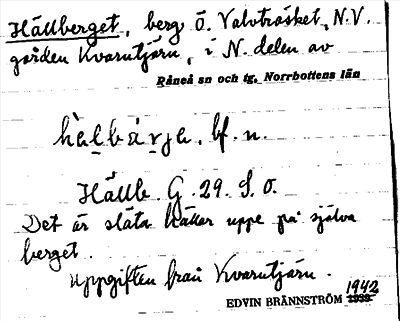 Hällberget, berg Ö. Valvträsket, N.V.
gården Kvarntjärn, i N. delen av
Råneå sn och tg, Norrbottens län
hä̀lbà̱rjə. bf. n.
Hällb. G. 29. S. O.
Det är släta hällar uppe på själva
berget.
Uppgiften från Kvarntjärn.
EDVIN BRÄNNSTRÖM 1942